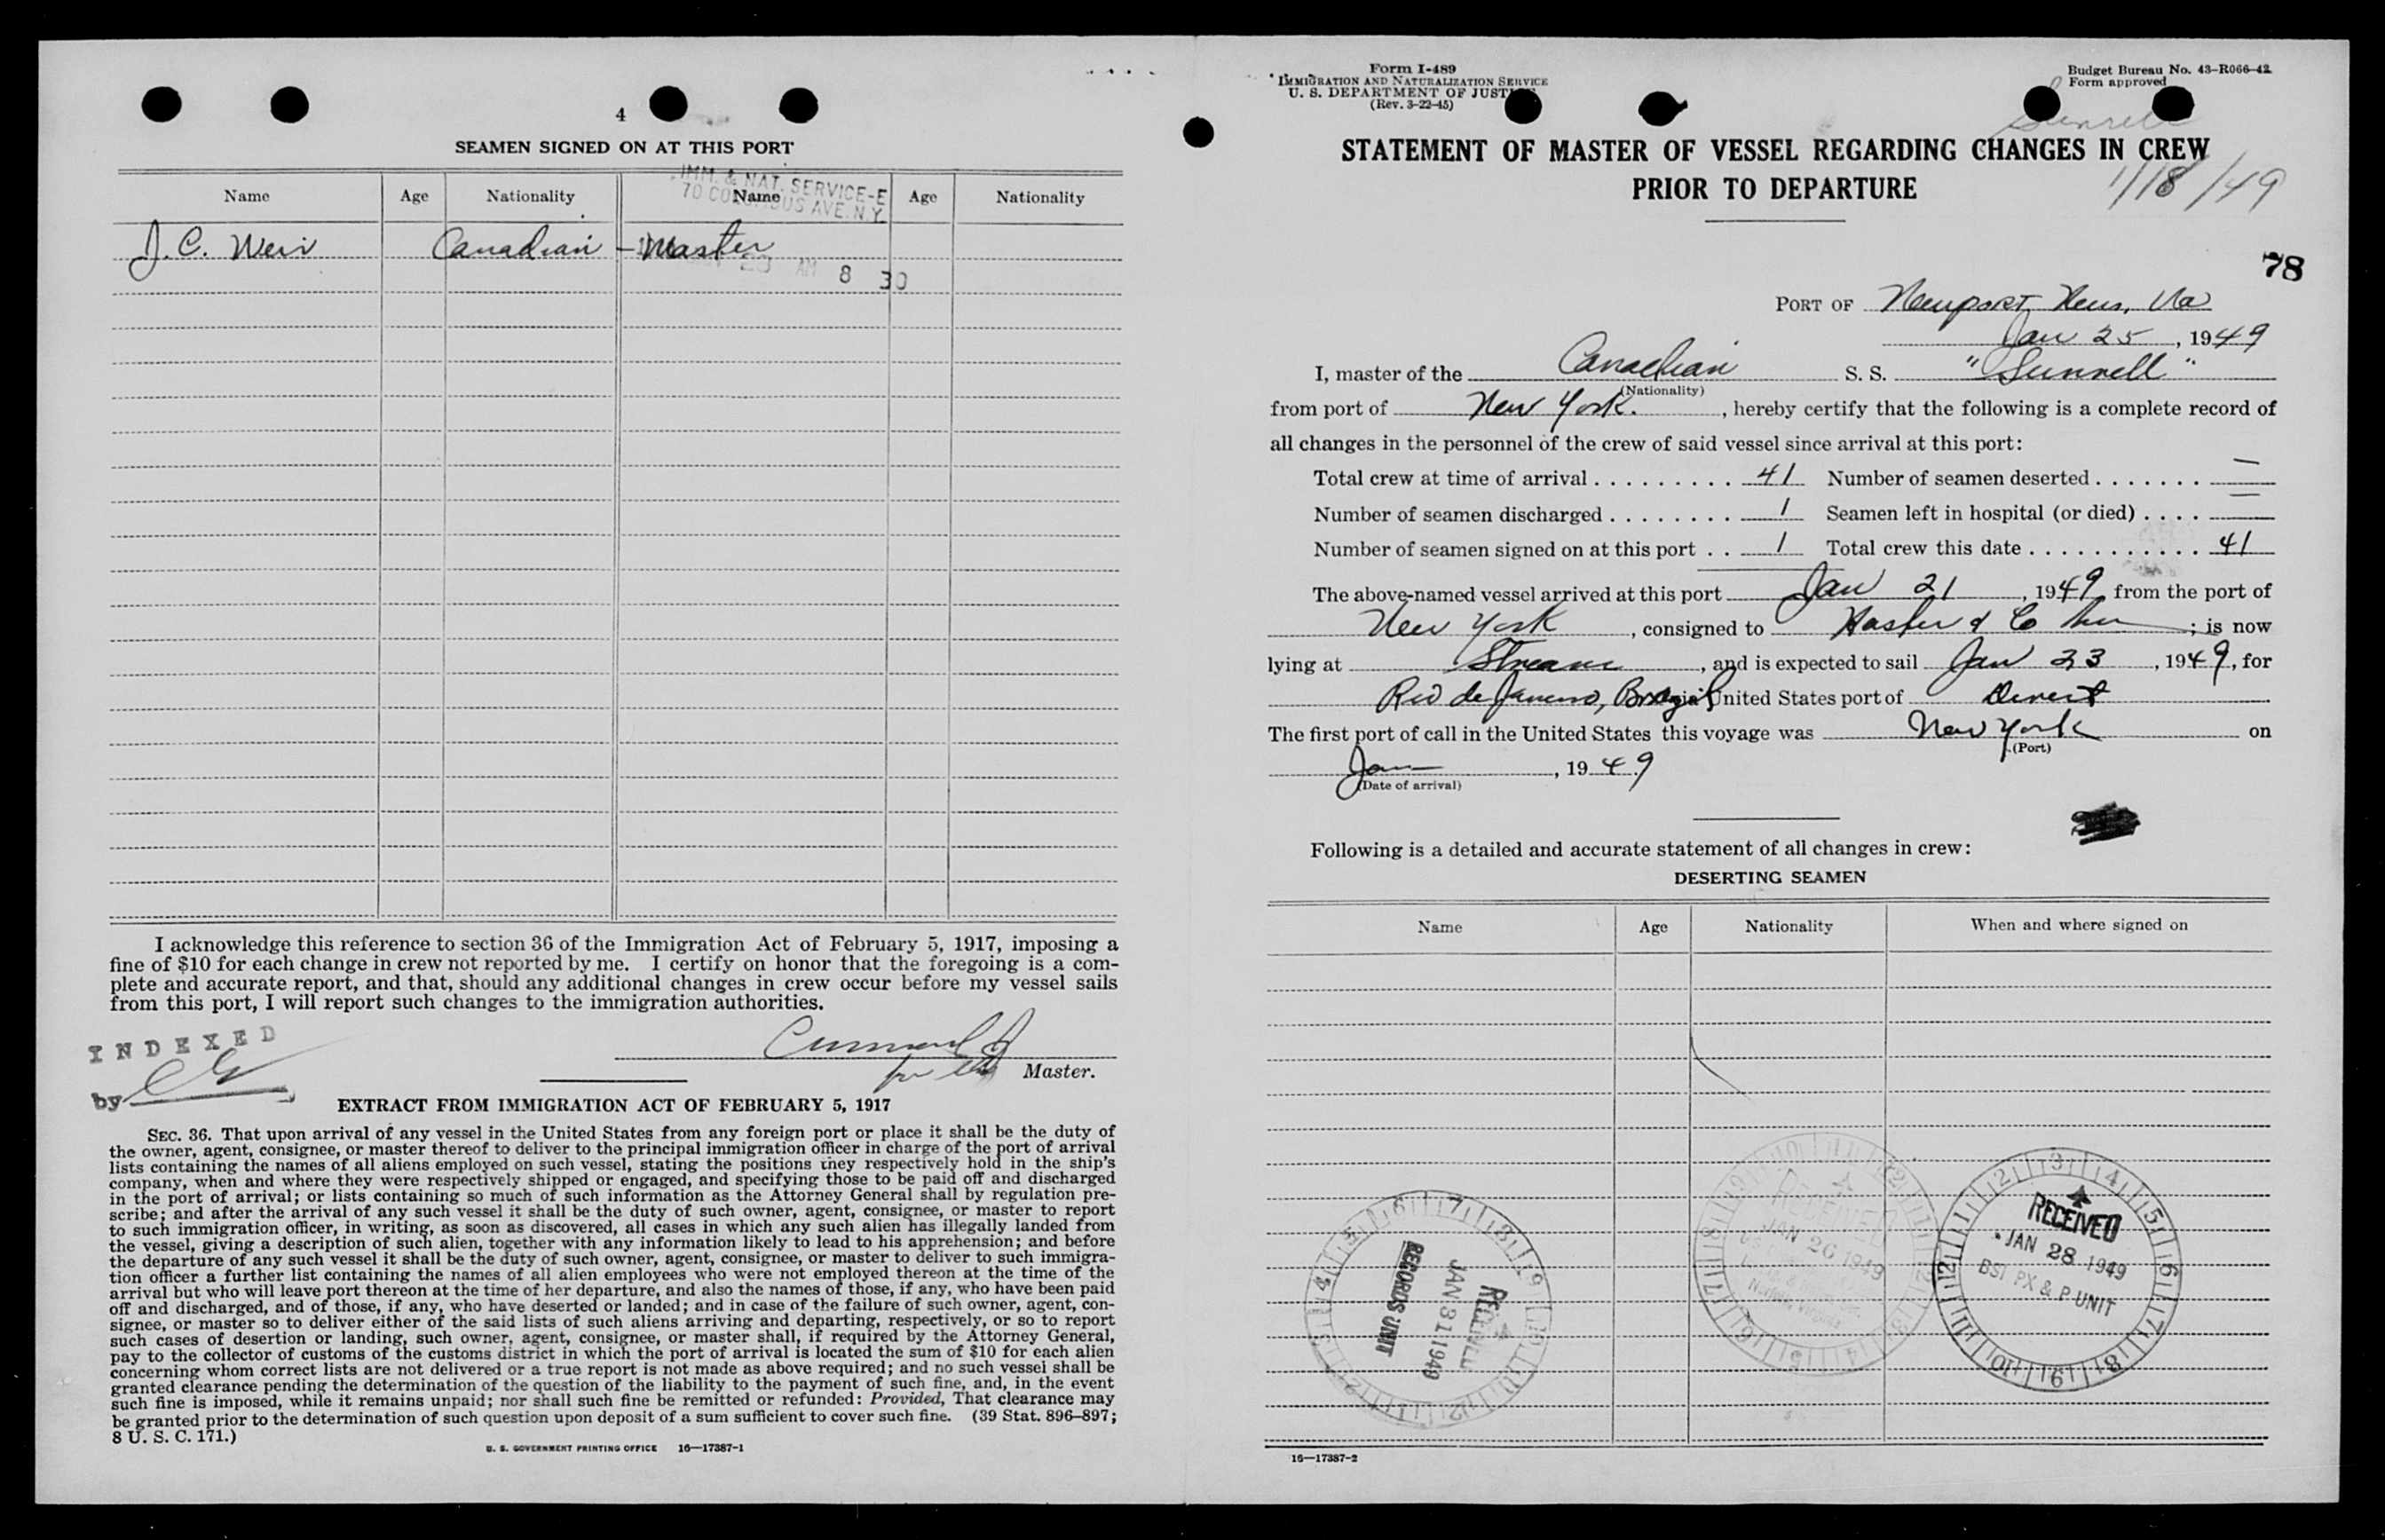 4
SEAMEN SIGNED ON AT THIS PORT
IMM. & NAT. SERVICE-E
70 COLUMBUS AVE. N.Y.
Name Age Nationality Name Age Nationality
J. C. Weir Canadian - Master
AM 8 30
I acknowledge this reference to section 36 of the Immigration Act of February 5, 1917, imposing a
fine of $10 for each change in crew not reported by me. I certify on honor that the foregoing is a com-
plete and accurate report, and that, should any additional changes in crew occur before my vessel sails
from this port, I will report such changes to the immigration authorities.
INDEXED
by
for the Master.
EXTRACT FROM IMMIGRATION ACT OF FEBRUARY 5, 1917
SEC. 36. That upon arrival of any vessel in the United States from any foreign port or place it shall be the duty of
the owner, agent, consignee, or master thereof to deliver to the principal immigration officer in charge of the port of arrival
lists containing the names of all aliens employed on such vessel, stating the positions they respectively hold in the ship's
company, when and where they were respectively shipped or engaged, and specifying those to be paid off and discharged
in the port of arrival; or lists containing so much of such information as the Attorney General shall by regulation pre-
scribe; and after the arrival of any such vessel it shall be the duty of such owner, agent, consignee, or master to report
to such immigration officer, in writing, as soon as discovered, all cases in which any such alien has illegally landed from
the vessel, giving a description of such alien, together with any information likely to lead to his apprehension; and before
the departure of any such vessel it shall be the duty of such owner, agent, consignee, or master to deliver to such immigra-
tion officer a further list containing the names of all alien employees who were not employed thereon at the time of the
arrival but who will leave port thereon at the time of her departure, and also the names of those, if any, who have been paid
off and discharged, and of those, if any, who have deserted or landed; and in case of the failure of such owner, agent, con-
signee, or master so to deliver either of the said lists of such aliens arriving and departing, respectively, or so to report
such cases of desertion or landing, such owner, agent, consignee, or master shall, if required by the Attorney General,
pay to the collector of customs of the customs district in which the port of arrival is located the sum of $10 for each alien
concerning whom correct lists are not delivered or a true report is not made as above required; and no such vessel shall be
granted clearance pending the determination of the question of the liability to the payment of such fine, and, in the event
such fine is imposed, while it remains unpaid; nor shall such fine be remitted or refunded: Provided, That clearance may
be granted prior to the determination of such question upon deposit of a sum sufficient to cover such fine. (39 Stat. 896–897;
8 U. S. C. 171.)
U. S. GOVERNMENT PRINTING OFFICE 16—17387-1
Form I-489
IMMIGRATION AND NATURALIZATION SERVICE
U. S. DEPARTMENT OF JUSTICE
(Rev. 3-22-45)
Budget Bureau No. 43-R066-42
Form approved
Sunrell
STATEMENT OF MASTER OF VESSEL REGARDING CHANGES IN CREW
PRIOR TO DEPARTURE
1/18/49
78
PORT OF Newport News, Va
Jan 25, 1949
I, master of the Canadian S. S. "Sunrell"
(Nationality)
from port of New York., hereby certify that the following is a complete record of
all changes in the personnel of the crew of said vessel since arrival at this port:
Total crew at time of arrival 41 Number of seamen deserted —
Number of seamen discharged 1 Seamen left in hospital (or died) —
Number of seamen signed on at this port 1 Total crew this date 41
The above-named vessel arrived at this port Jan 21, 1949 from the port of
New York, consigned to Hasler & Co; is now
lying at Stream, and is expected to sail Jan 23, 1949, for
Rio de Janeiro, Brazil United States port of Direct
The first port of call in the United States this voyage was New York on
(Port)
Jan, 1949
(Date of arrival)
Following is a detailed and accurate statement of all changes in crew:
DESERTING SEAMEN
Name Age Nationality When and where signed on
RECEIVED
JAN 31 1949
RECORDS UNIT
RECEIVED
JAN 26 1949
Norfolk Virginia
RECEIVED
JAN 28 1949
BSI PX & P UNIT
16—17387-2